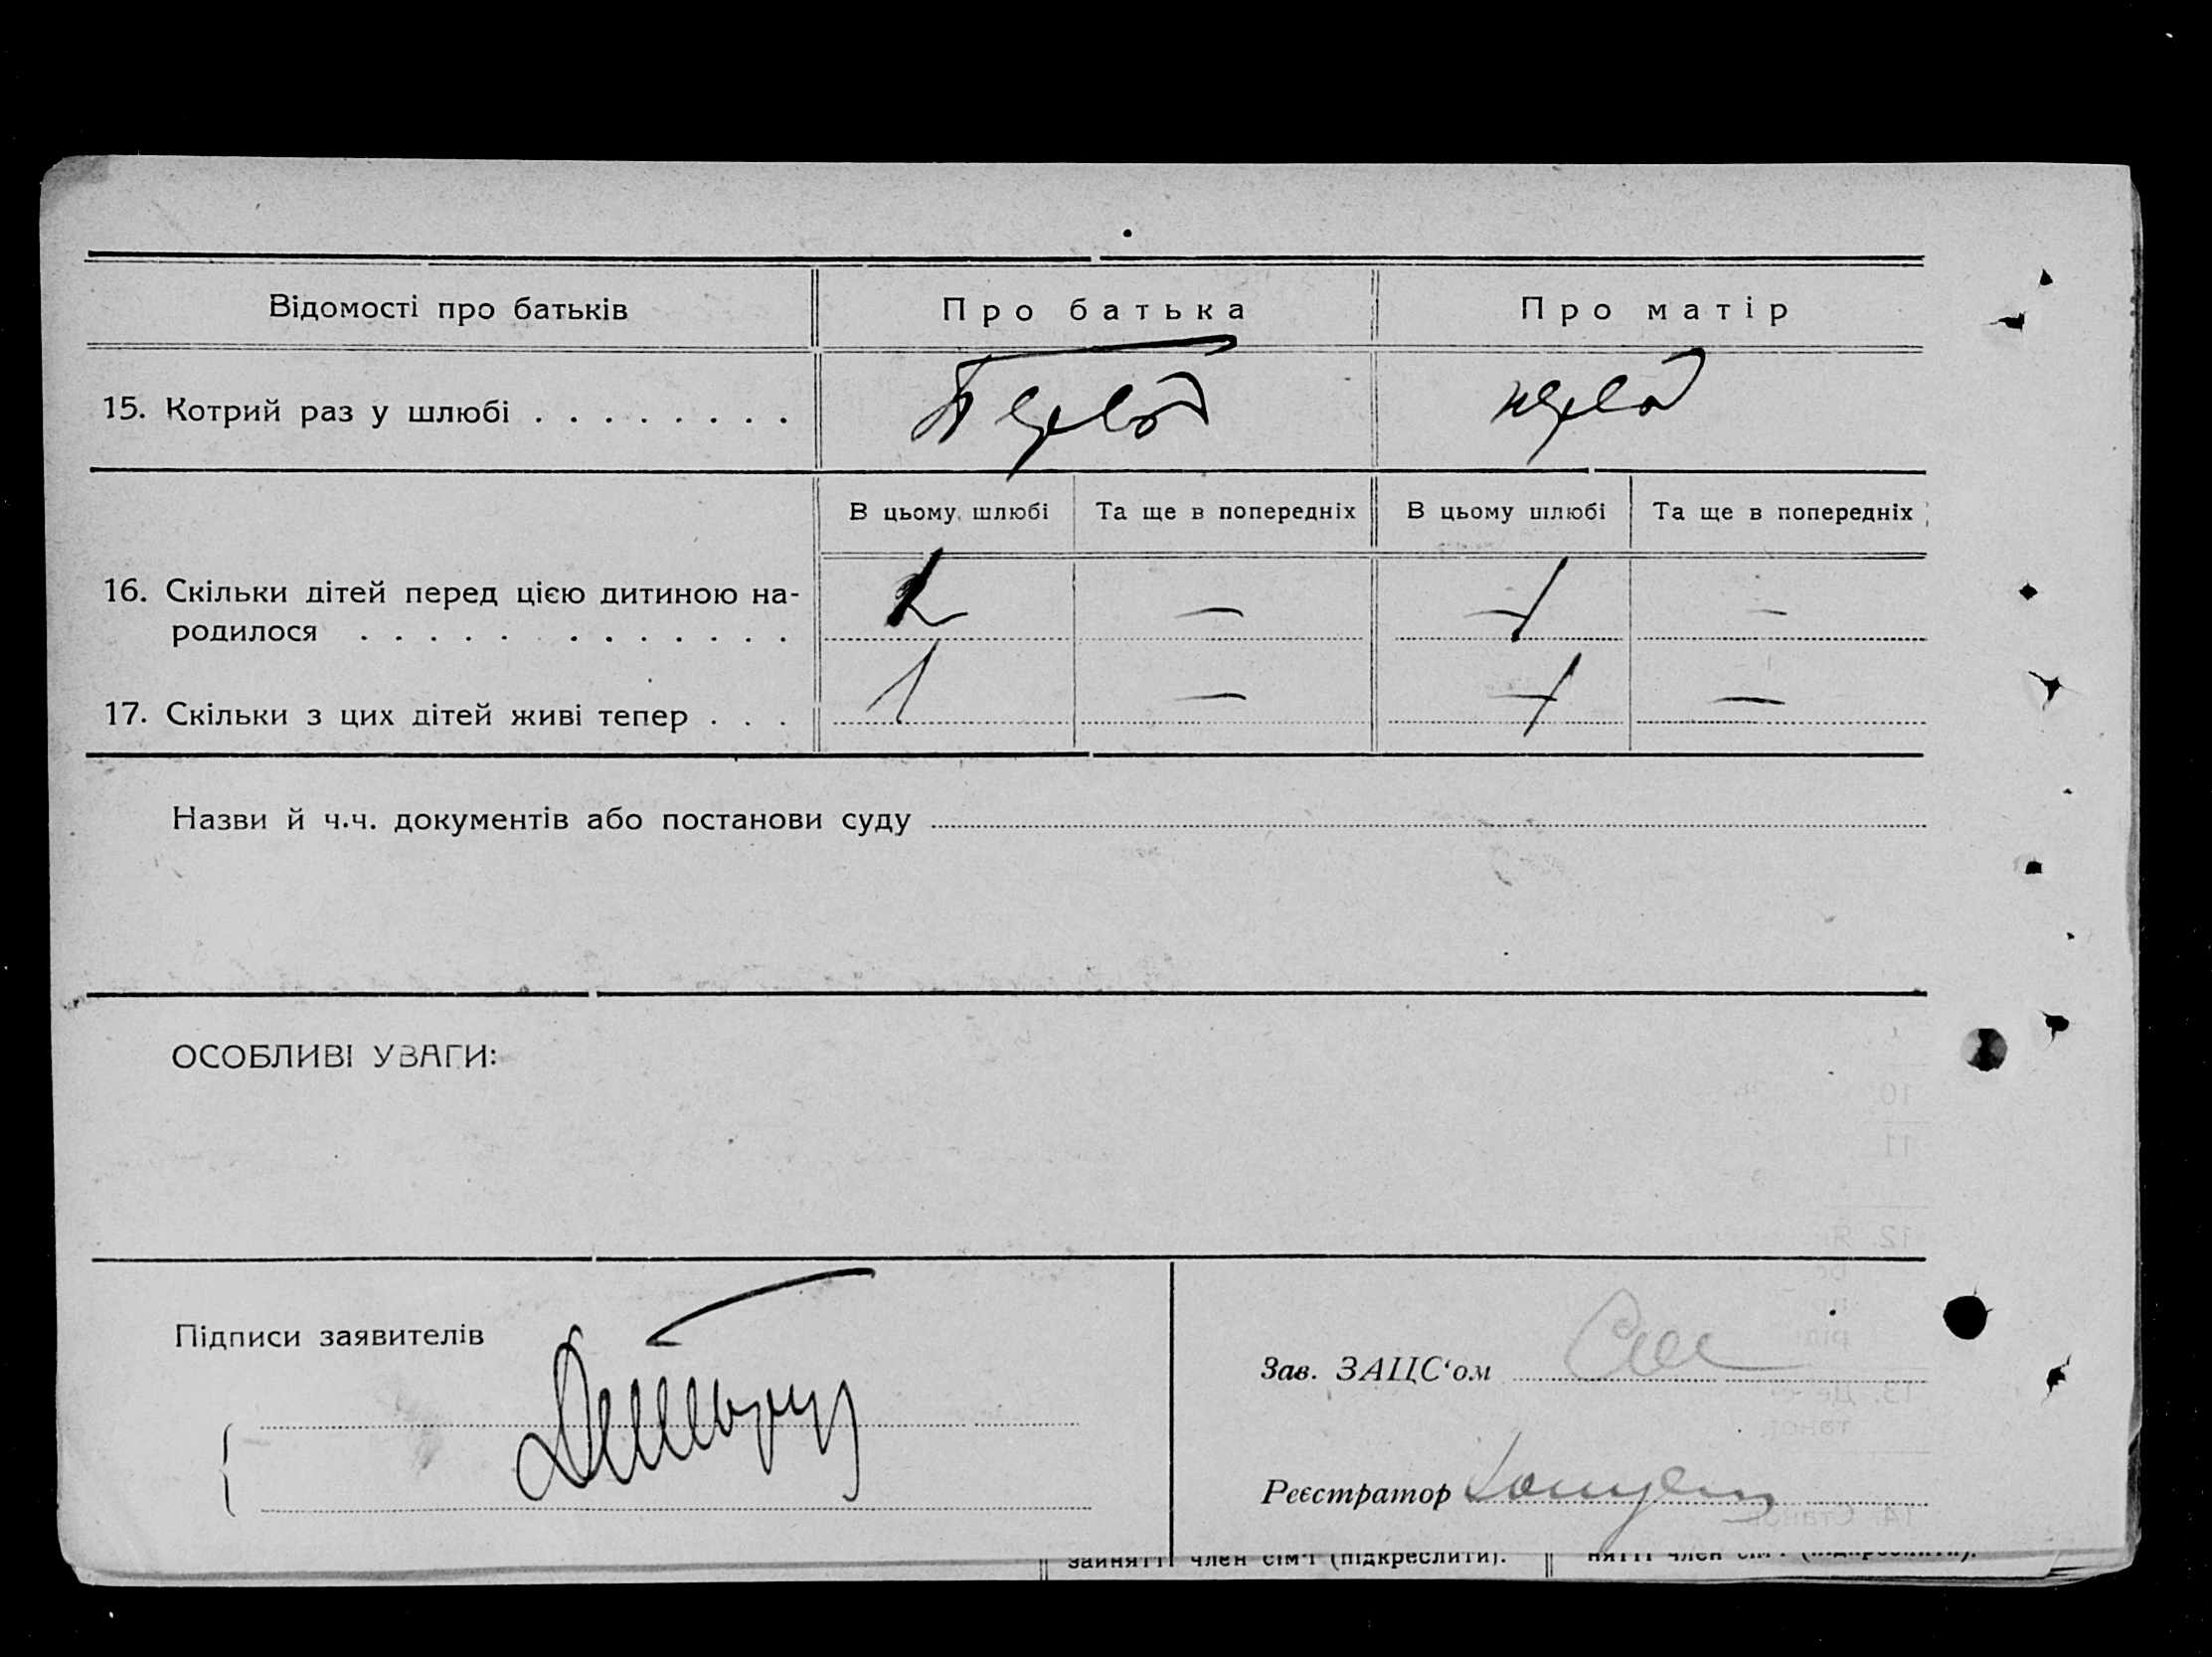 Відомості про батьків Про батька Про матір
15. Котрий раз у шлюбі . . . . . . . .
В цьому шлюбі Та ще в попередніх В цьому шлюбі Та ще в попередніх
16. Скільки дітей перед цією дитиною на-
родилося . . . . . . . . . . . . . — 1 —
17. Скільки з цих дітей живі тепер . . . 1 — 1 —
Назви й ч.ч. документів або постанови суду
ОСОБЛИВІ УВАГИ:
Підписи заявителів
Зав. ЗАЦС‘ом
Реєстратор
зайнятті член сім'ї (підкреслити).